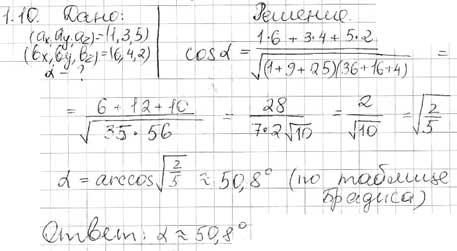 1.10. Дано: Решение.
(aₓ, aᵧ, a_z) = (1,3,5)
(bₓ, bᵧ, b_z) = (6,4,2)
α - ?
cosα = (1·6 + 3·4 + 5·2) / √((1+9+25)(36+16+4)) =
= (6+12+10) / √(35·56) = 28 / (7·2√10) = 2/√10 = √(2/5)
α = arccos√(2/5) ≈ 50,8° (по таблице
Брадиса)
Ответ: α ≈ 50,8°